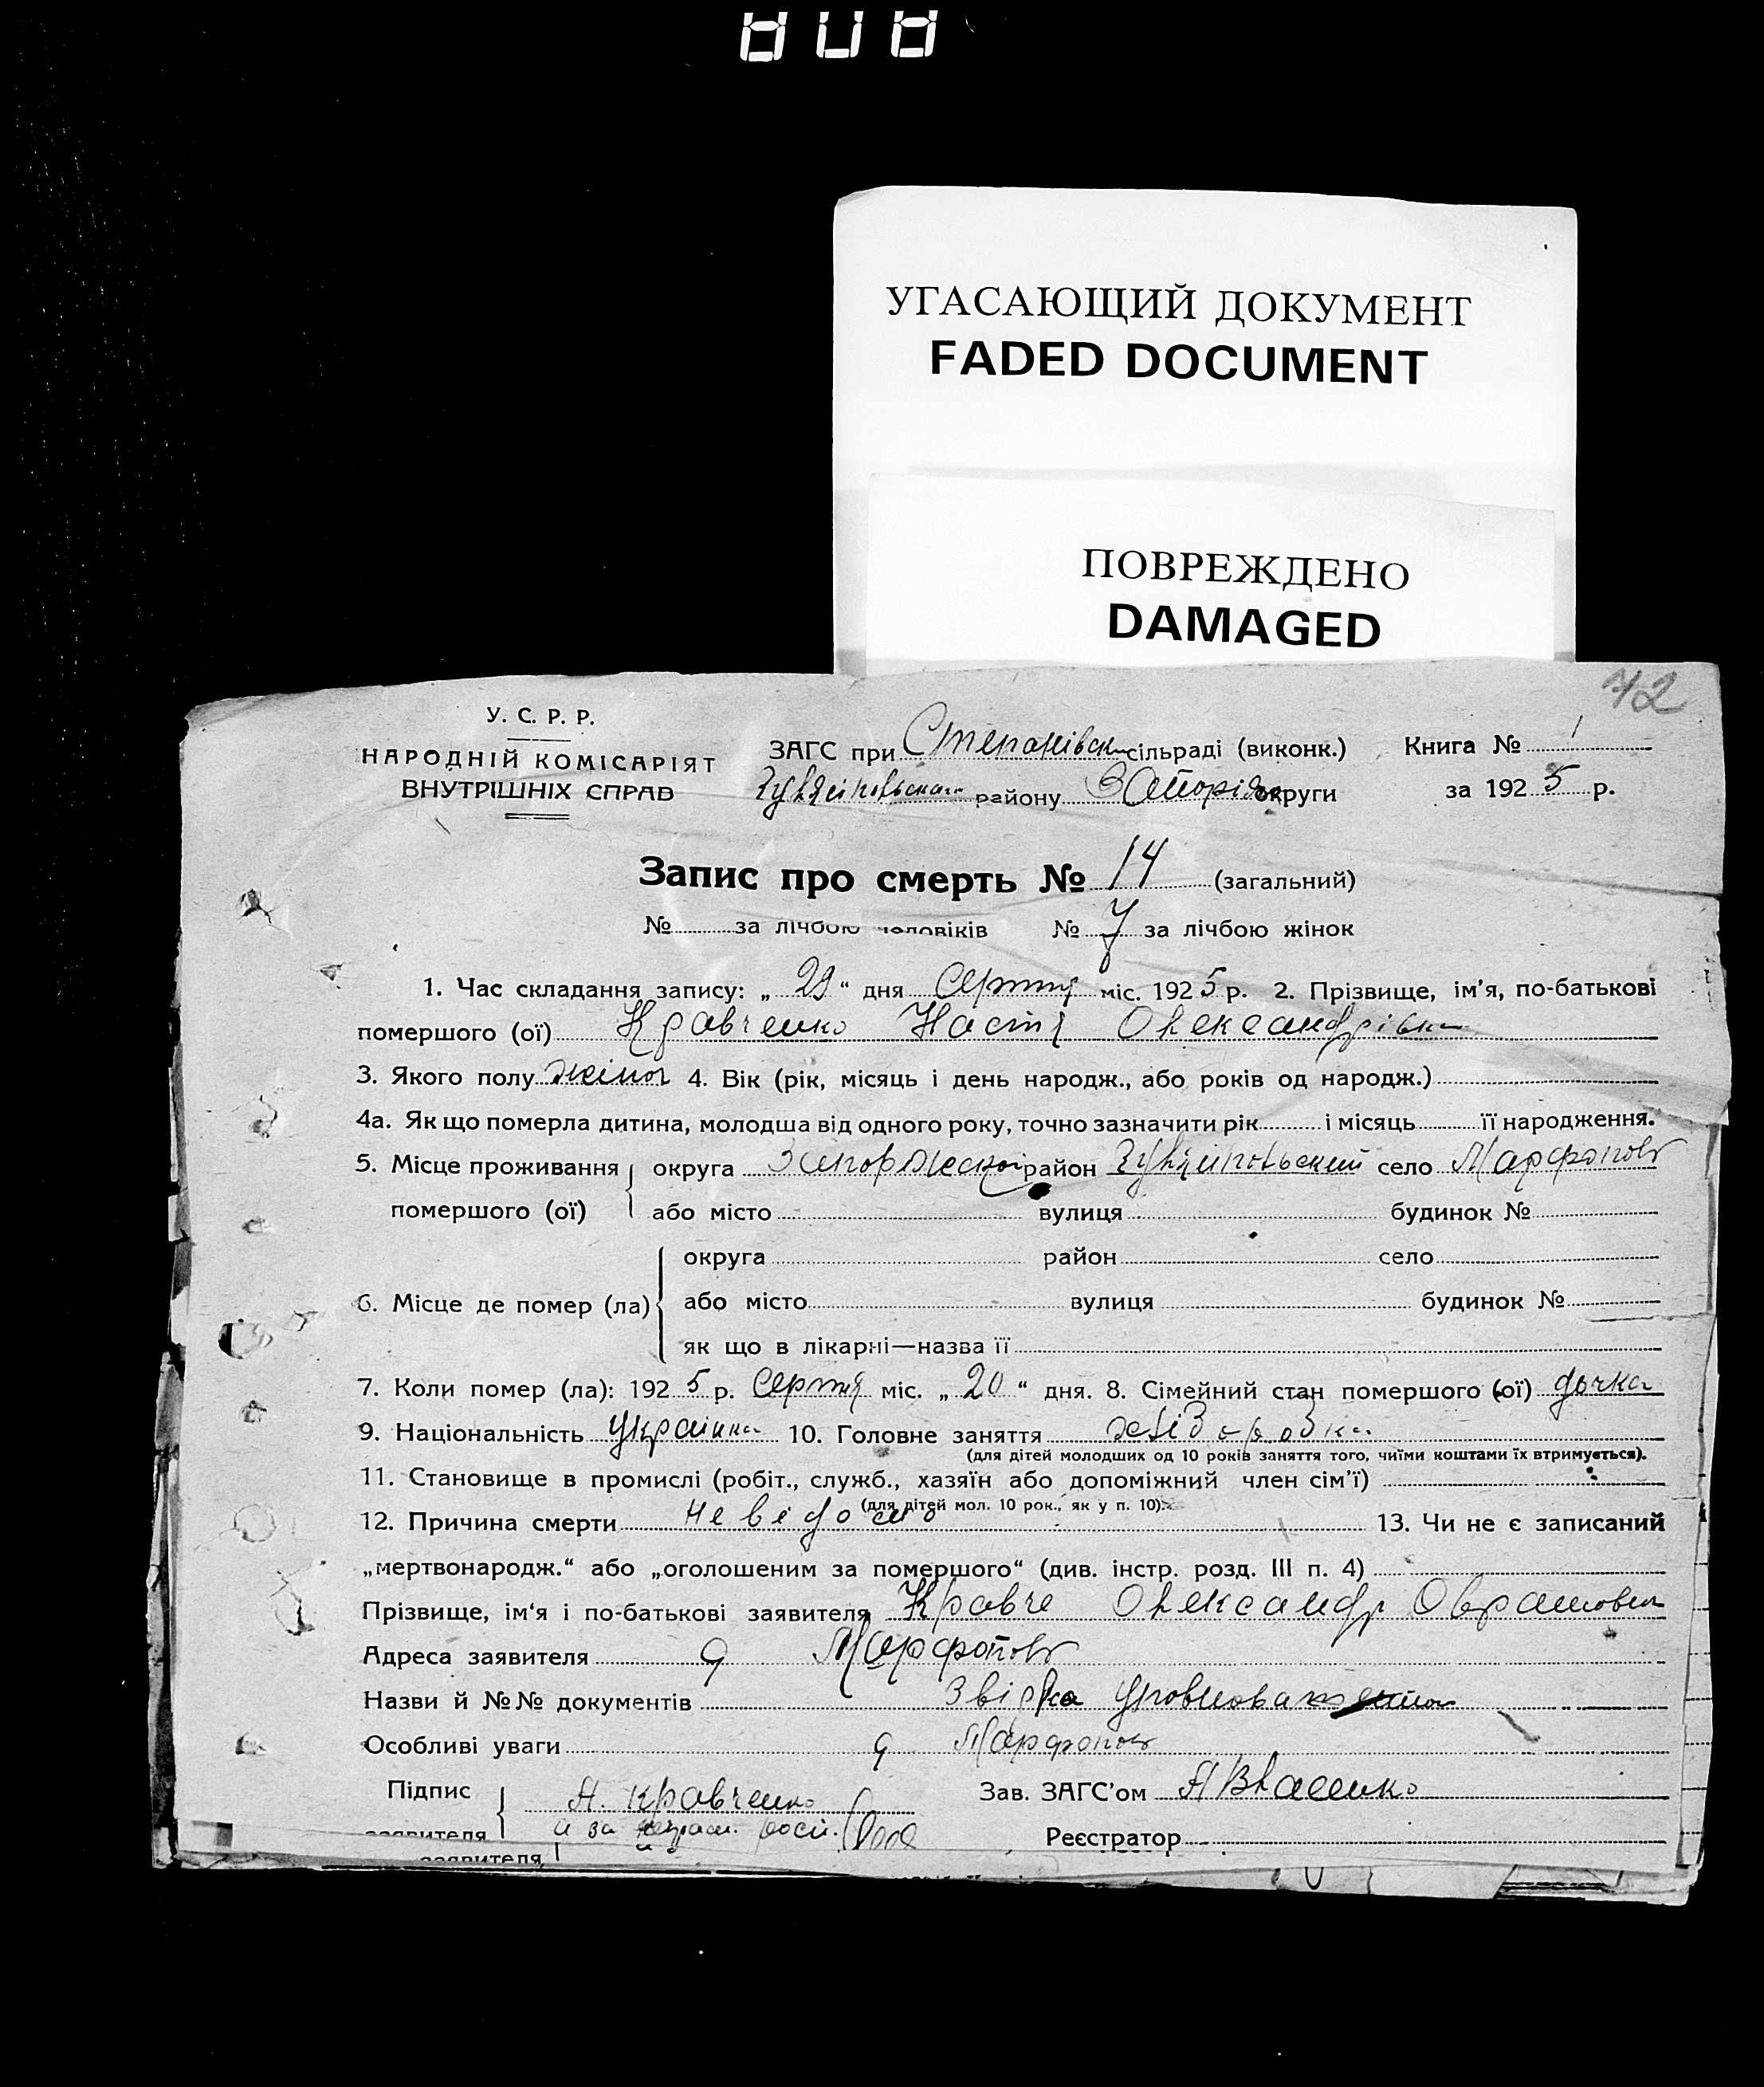 УГАСАЮЩИЙ ДОКУМЕНТ
FADED DOCUMENT
ПОВРЕЖДЕНО
DAMAGED
42
У. С. Р. Р.
НАРОДНІЙ КОМІСАРІЯТ
ВНУТРІШНІХ СПРАВ
ЗАГС при Степанівськ сільраді (виконк.) Книга № 1
району округи за 1925 р.
Запис про смерть № 14 (загальний)
№ за лічбою чоловіків № 7 за лічбою жінок
1. Час складання запису: „ 29 “ дня Серпня міс. 1925 р. 2. Прізвище, ім’я, по-батькові
помершого (ої) Кравченко Настя Олександрівна
3. Якого полу жіноч 4. Вік (рік, місяць і день народж., або років од народж.)
4а. Як що померла дитина, молодша від одного року, точно зазначити рік і місяць її народження.
5. Місце проживання округа район село
помершого (ої) або місто вулиця будинок №
округа район село
6. Місце де помер (ла) або місто вулиця будинок №
як що в лікарні—назва її
7. Коли помер (ла): 1925 р. Серпня міс. „ 20 “ дня. 8. Сімейний стан помершого (ої) дочка
9. Національність Українка 10. Головне заняття хліборобка
(для дітей молодших од 10 років заняття того, чиїми коштами їх втримується).
11. Становище в промислі (робіт., служб., хазяїн або допоміжний член сім’ї)
(для дітей мол. 10 рок., як у п. 10).
12. Причина смерти невідомо 13. Чи не є записаний
„мертвонародж.“ або „оголошеним за помершого“ (див. інстр. розд. III п. 4)
Прізвище, ім‘я і по-батькові заявителя Кравче Олександр
Адреса заявителя
Назви й №№ документів
Особливі уваги
Підпис А. Кравченко Зав. ЗАГС’ом А Власенко
заявителя а за Реєстратор
заявителя